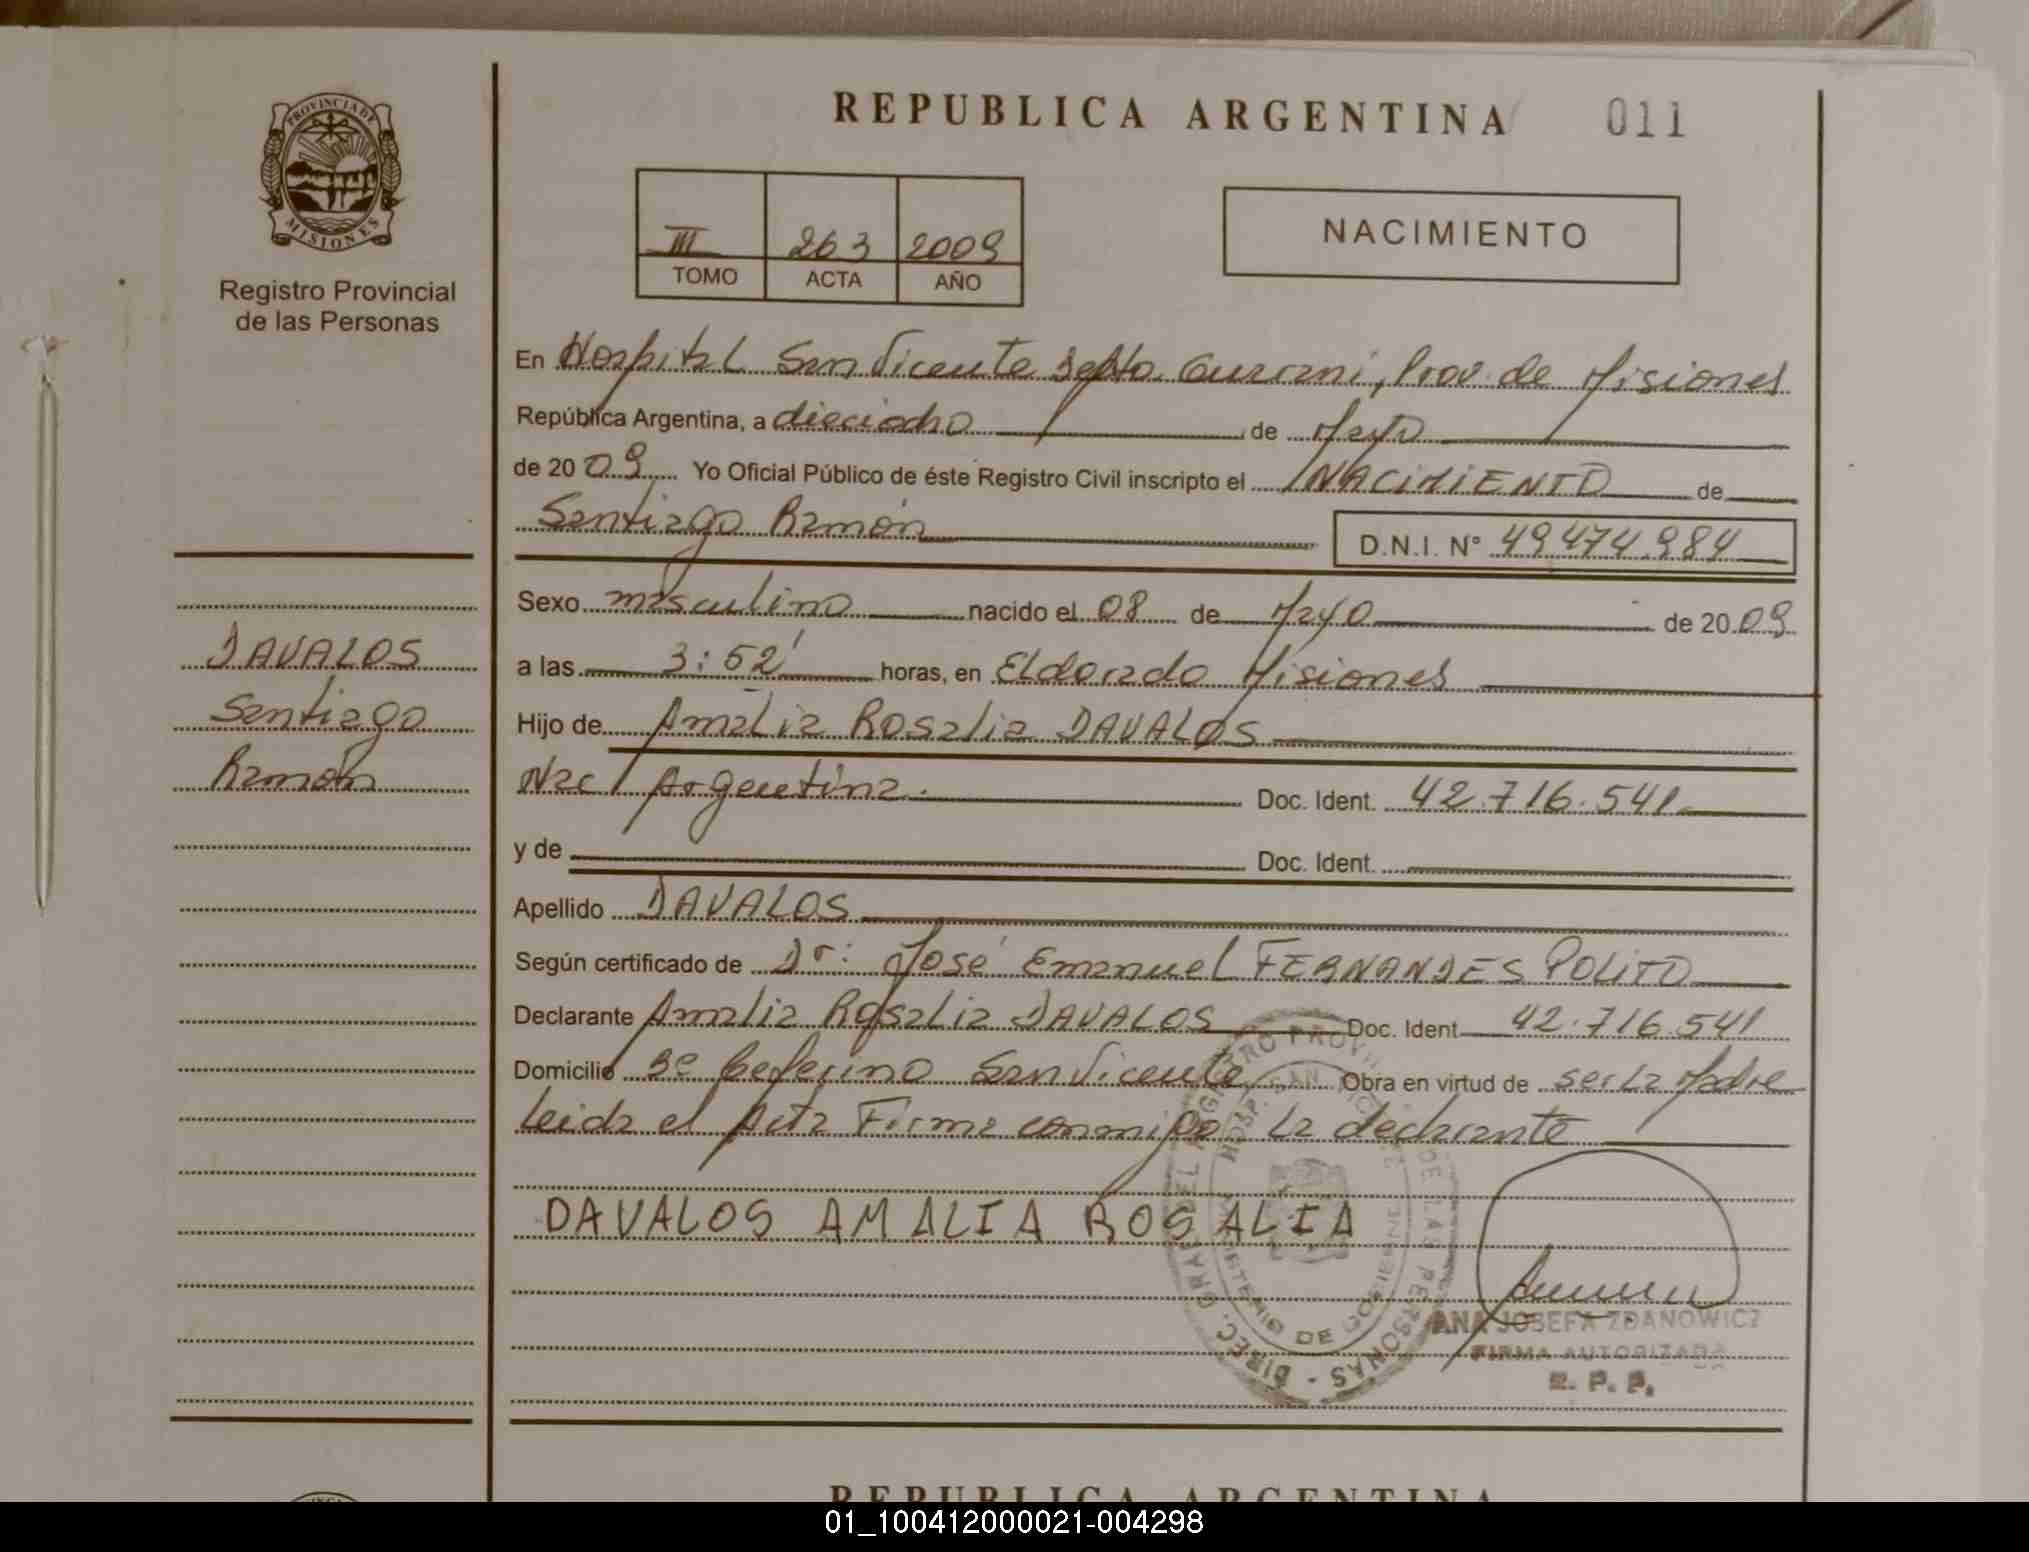 REPUBLICA ARGENTINA 011
PROVINCIA DE
MISIONES
Registro Provincial
de las Personas
III 263 2009
TOMO ACTA AÑO
NACIMIENTO
En Hospital San Vicente Dpto. Guarani, Prov. de Misiones
República Argentina, a dieciocho de Mayo
de 2009 Yo Oficial Público de éste Registro Civil inscripto el NACIMIENTO de
Santiago Ramón D.N.I. N° 49.474.984
Sexo masculino nacido el 08 de Mayo de 2009
DAVALOS
Santiago
Ramón
a las 3:52' horas, en Eldorado Misiones
Hijo de Amalia Rosalia DAVALOS
Nac Argentina. Doc. Ident. 42.716.541
y de Doc. Ident.
Apellido DAVALOS
Según certificado de Dr: José Emanuel FERNANDES POLITO
Declarante Amalia Rosalia DAVALOS Doc. Ident 42.716.541
Domicilio Bº Ceferino San Vicente Obra en virtud de ser la Madre
Leida el Acta Firma conmigo la declarante
DAVALOS AMALIA ROSALIA
DIREC. GRAL. DEL REGISTRO PROVINCIAL DE LAS PERSONAS
HOSP. SAN VICENTE
MINISTERIO DE GOBIERNO
ANA JOSEFA ZDANOWICZ
FIRMA AUTORIZADA
R. P. P.
REPUBLICA ARGENTINA
01_100412000021-004298